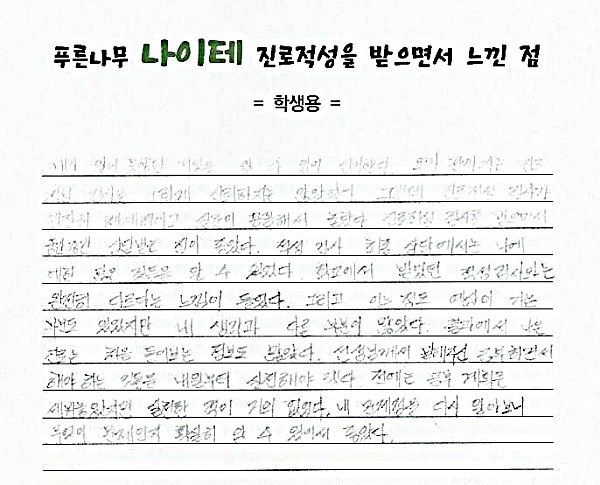 푸른나무 나이테 진로적성을 받으면서 느낀 점
= 학생용 =
내가 알지 못했던 것을 알 수 있어 신기했다. 오기 전까지는 진로
적성 검사를 그렇게 신뢰하지는 않았었다. 그런데 진로적성 검사가
체계적이고 설명이 활용해서 놀랐다. 진로적성 검사를 받으면서
상담받은 점이 좋았다. 적성 검사 최종 상담에서는 나에
대해 많은 것들을 알 수 있었다. 학교에서 받았던 적성검사와는
완전히 다르다는 느낌이 들었다. 그리고 어느 정도 예상이 가는
부분도 있었지만 내 생각과 다른 부분이 많았다. 결과에서 나온
진로는 처음 들어보는 정보도 많았다. 선생님께서 공부하면서
해야 하는 것들을 내일부터 실천해야 겠다. 전에는 공부 계획은
세워놓았지만 실천한 적이 거의 없었다. 내 문제점을 다시 알아보니
무엇이 문제인지 확실히 알 수 있어서 좋았다.